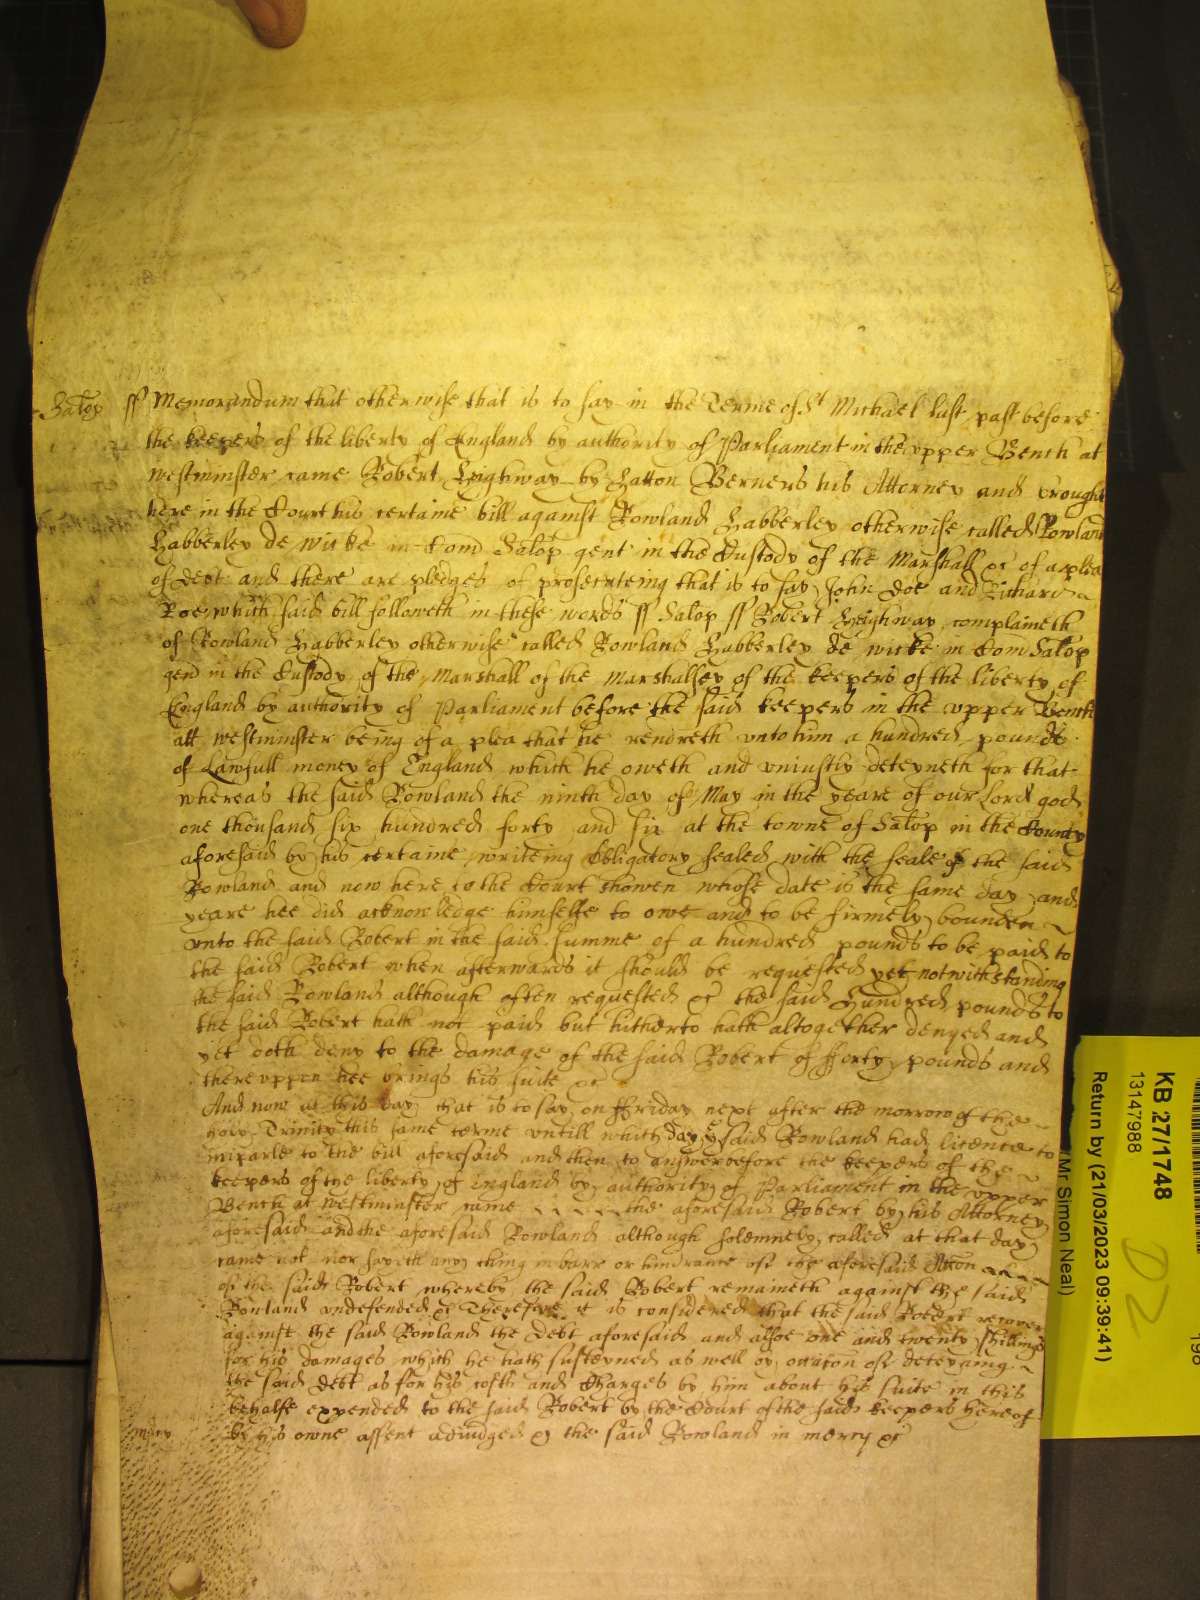 Salop ss Memorandum that otherwise that is to say in the Terme of St Michael last past before
the keepers of the liberty of England by authority of Parliament in the vpper Bench at
Westminster came Robert Leighway by Hatton Berners his Attorney and brought
here in the Court his certaine bill against Rowland Habberley otherwise called Rowland
Habberley de wicke in Com Salop gent in the Custody of the Marshall &c of a plea
of debt and there are pledges of prosecuteing that is to say John Doe and Richard
Roe which said bill followeth in these words ss Salop ss Robert Leighway complaineth
of Rowland Habberley otherwise called Rowland Habberley de wicke in Com Salop
gent in the Custody of the Marshall of the Marshalsey of the keepers of the liberty of
England by authority of Parliament before the said keepers in the vpper Bench
att Westminster being of a plea that he rendreth vnto him a hundred pounds
of Lawfull money of England which he oweth and vniustly deteyneth for that
whereas the said Rowland the ninth day of May in the yeare of our Lord god
one thousand six hundred forty and six at the towne of Salop in the County
aforesaid by his certaine writeing Obligatory sealed with the seale of the said
Rowland and now here to the Court showen whose date is the same day and
yeare hee did acknowledge himselfe to owe and to be firmely bounden
vnto the said Robert in the said summe of a hundred pounds to be paid to
the said Robert when afterwards it should be requested yet notwithstanding
the said Rowland although often requested &c the said Hundred pounds to
the said Robert hath not paid but hitherto hath altogether denyed and
yet doth deny to the damage of the said Robert of fforty pounds and
therevppon hee brings his suite &c
And now at this day that is to say on ffriday next after the morrow of the
holy Trinity this same terme vntill which day ye said Rowland had licence to
imparle to the bill aforesaid and then to answer before the keepers of the
keepers of the liberty of England by authority of Parliament in the vpper
Bench at Westminster came the aforesaid Robert by his Attorney
aforesaid and the aforesaid Rowland although solemnely called at that day
came not nor sayeth any thing in barr or hindrance of the aforesaid Accon
of the said Robert whereby the said Robert remaineth against the said
Rowland vndefended &c Therefore it is considered that the said Robert recover
against the said Rowland the Debt aforesaid and alsoe one and twenty shillings
for his damages which he hath susteyned as well by occacon of deteyning
the said Debt as for his costs and Charges by him about his suite in this
behalfe expended to the said Robert by the Court of the said keepers hereof
mercy by his owne assent adiudged &c the said Rowland in mercy &c
KB 27/1748
13147988
Return by (21/03/2023 09:39:41)
(Mr Simon Neal)
D2
198